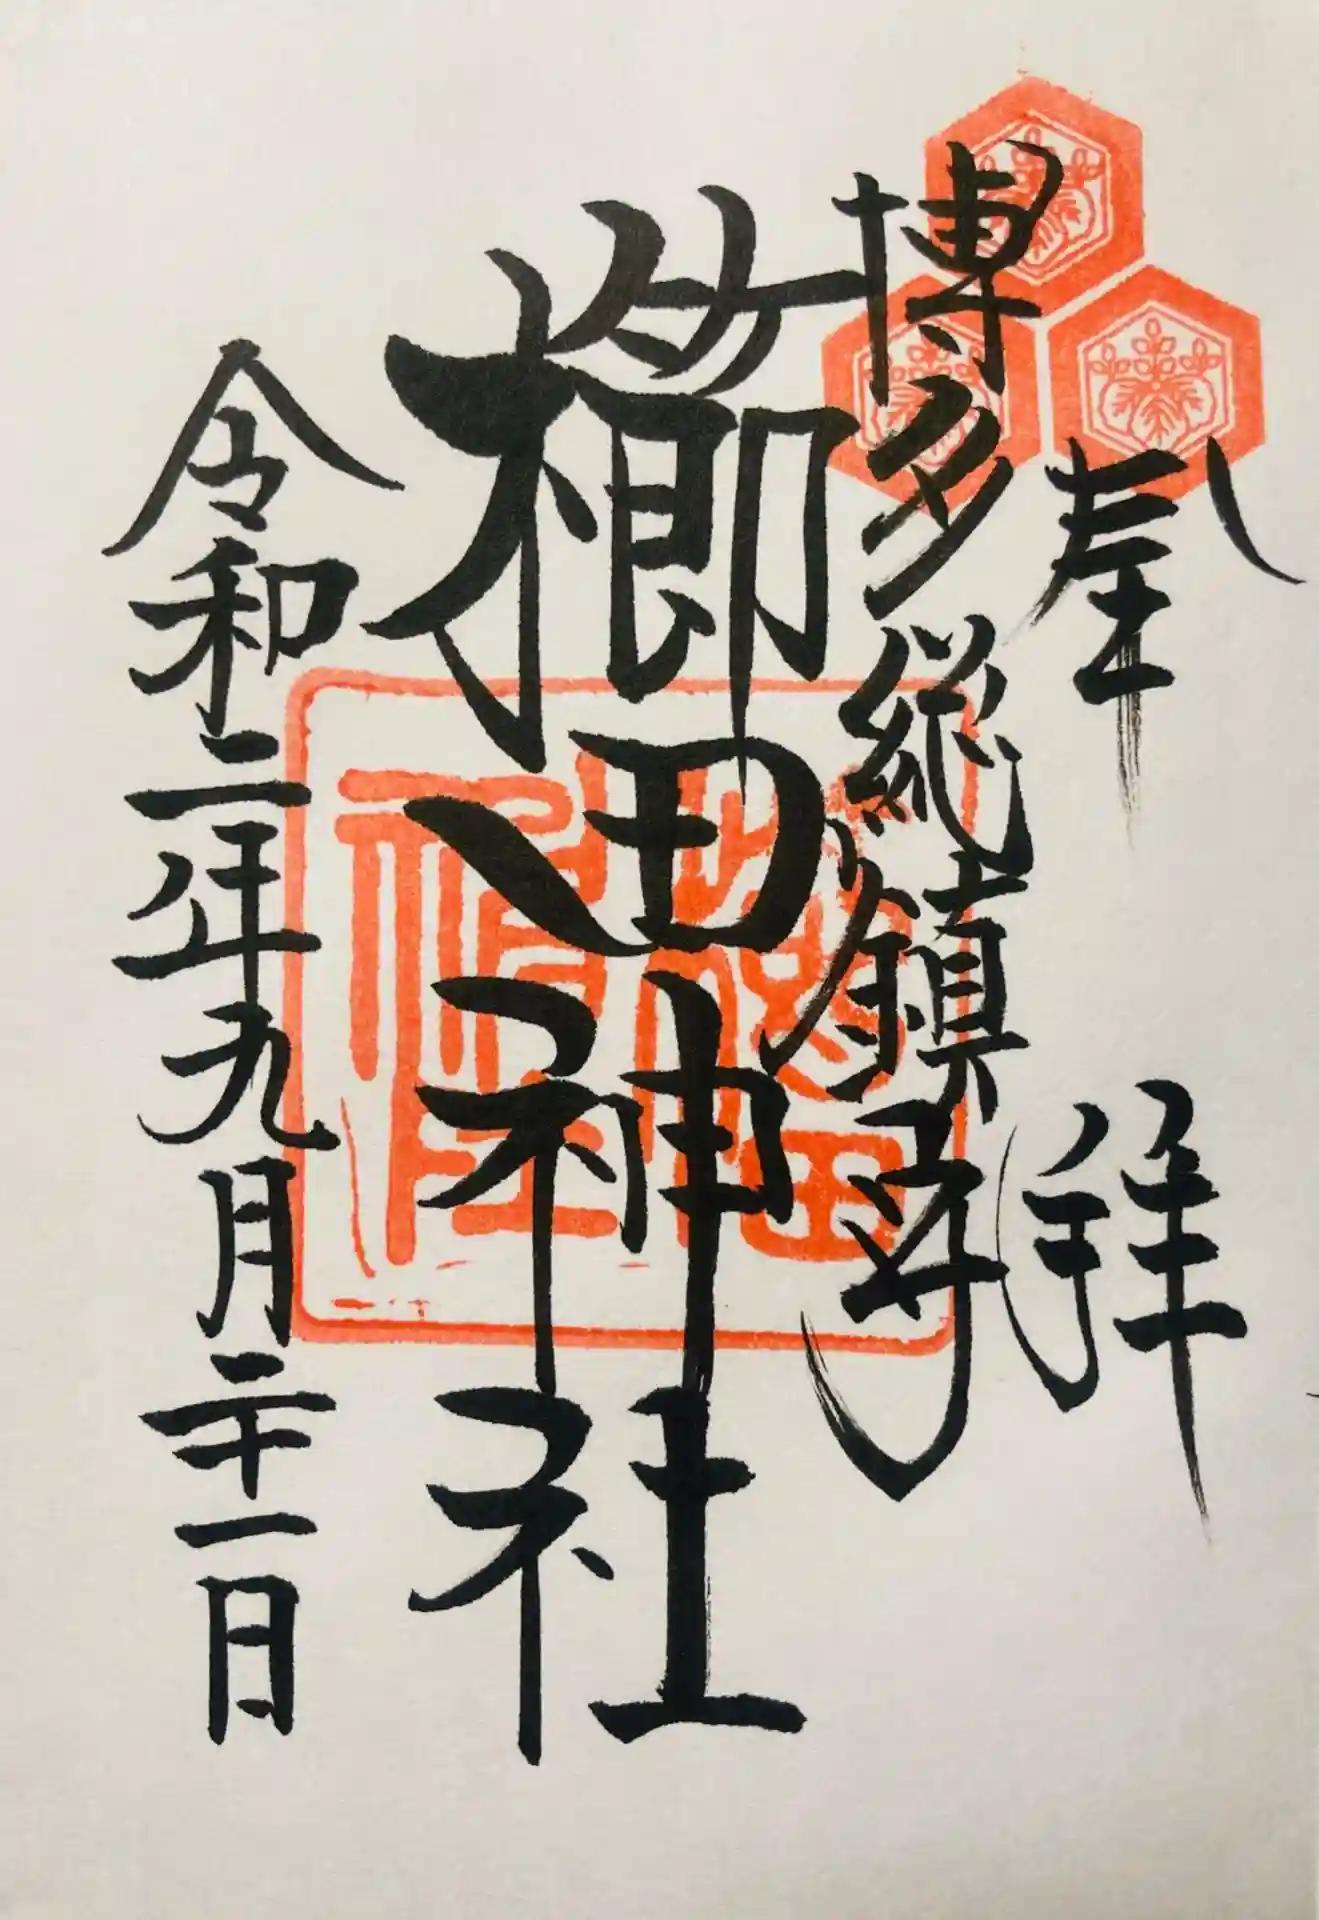 奉拝
博多総鎮守
櫛田神社
令和二年九月二十一日